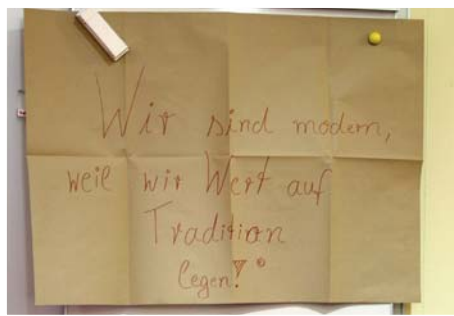 Wir sind modern,
weil wir Wert auf
Tradition
legen!